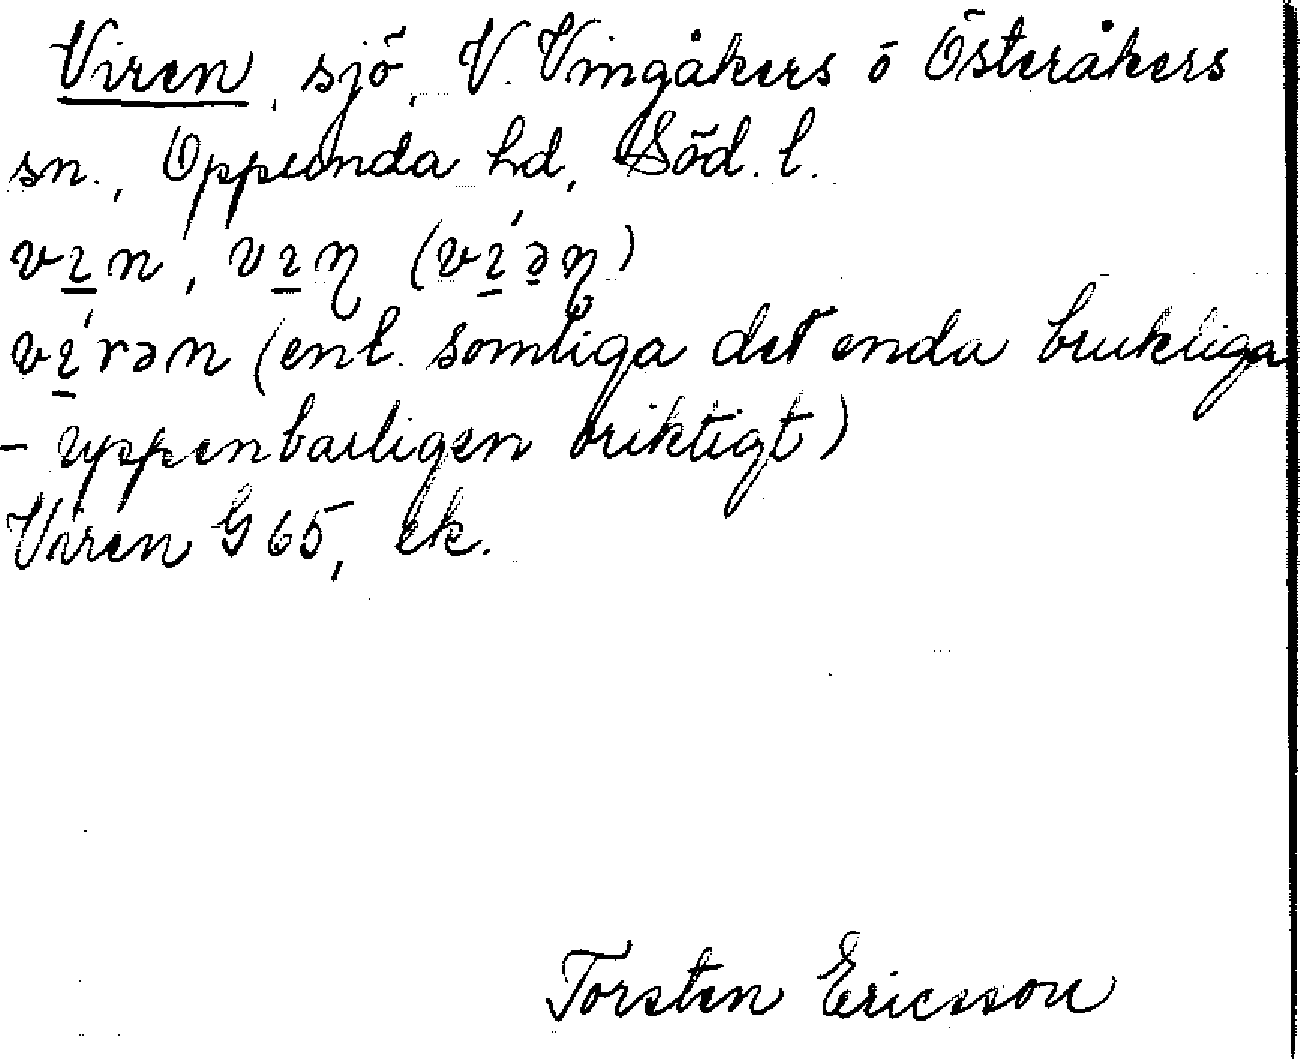 Viren, sjö, V. Vingåkers o Österåkers
sn., Oppunda hd, Söd. l.
vɪ̲n, vɪ̲ɳ (vɪ̲́əɳ)
vɪ̲́rən (enl. somliga det enda brukliga
- uppenbarligen oriktigt)
Viren G 65, ek.
Torsten Ericsson